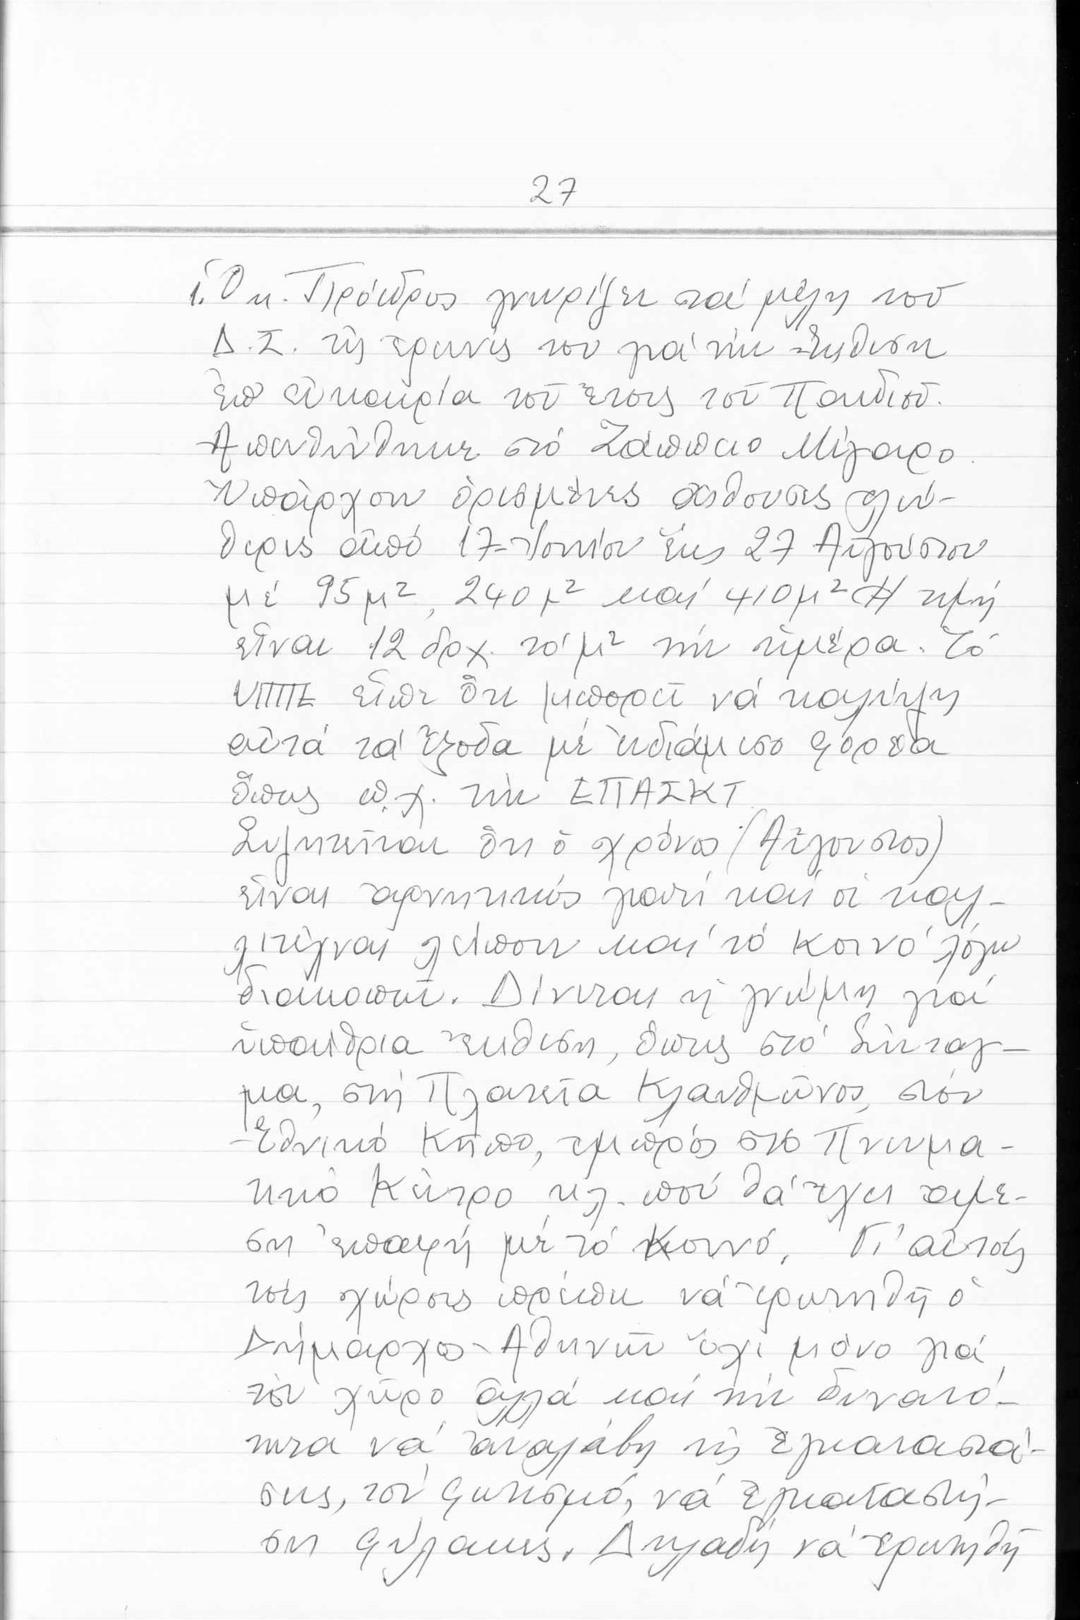 27
1. Ὁ κ. Πρόεδρος γνωρίζει στά μέλη τοῦ
Δ.Σ. τίς ἔρευνές του γιά τήν Ἔκθεση
ἐπ' εὐκαιρία τοῦ Ἔτους τοῦ Παιδιοῦ.
Ἀπευθύνθηκε στό Ζάππειο Μέγαρο.
Ὑπάρχουν ὁρισμένες αἴθουσες ἐλεύ-
θερες ἀπό 17 Ἰουνίου ἕως 27 Αὐγούστου
μέ 95 μ², 240 μ² καί 410 μ² Ἡ τιμή
εἶναι 12 δρχ. τό μ² τήν ἡμέρα. Τό
ΥΠΠΕ εἶπε ὅτι μπορεῖ νά καλύψη
αὐτά τά ἔξοδα μέ ἐνδιάμεσο φορέα
ὅπως π.χ. τήν ΕΠΑΣΚΤ
Συζητεῖται ὅτι ὁ χρόνος (Αὔγουστος)
εἶναι ἀρνητικός γιατί καί οἱ καλ-
λιτέχναι λείπουν καί τό κοινό λόγω
διακοπῶν. Δίνεται ἡ γνώμη γιά
ὑπαίθρια ἔκθεση, ὅπως στό Σύνταγ-
μα, στή Πλατεῖα Κλαυθμῶνος, στόν
Ἐθνικό Κῆπο, ἐμπρός στό Πνευμα-
τικό Κέντρο κλ. πού θά ἔχει ἄμε-
ση ἐπαφή μέ τό κοινό. Γι' αὐτούς
τούς χώρους πρέπει νά ἐρωτηθῆ ὁ
Δήμαρχος Ἀθηνῶν ὄχι μόνο γιά
τόν χῶρο ἀλλά καί τήν δυνατό-
τητα νά ἀναλάβη τίς ἐγκαταστά-
σεις, τόν φωτισμό, νά ἐγκαταστή-
ση φύλακες. Δηλαδή νά ἐρωτηθῆ